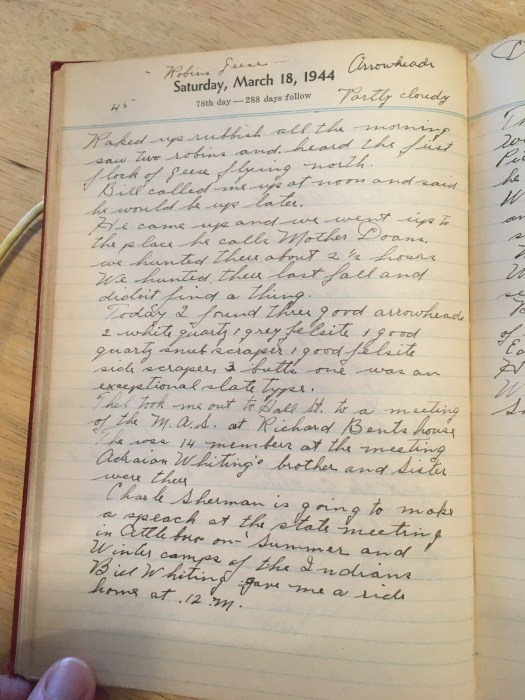 Robins Geese
Arrowheads
Saturday, March 18, 1944
78th day — 288 days follow
45°
Partly cloudy
Raked up rubbish all the morning
saw two robins and heard the first
flock of geese flying north.
Bill called me up at noon and said
he would be up later.
He came up and we went up to
the place he calls Mother Doans.
we hunted there about 2 ½ hours
We hunted there last fall and
didn't find a thing.
Today I found three good arrowheads
2 white quartz 1 grey felsite, 1 good
quartz snub scraper 1 good felsite
side scraper, 3 butts one was an
exceptional slate type.
Thel took me out to Hall St. to a meeting
of the M.A.S. at Richard Bents house
The was 14 members at the meeting
Adraian Whiting's brother and Sister
were there
Charle Sherman is going to make
a speach at the state meeting
in Attleboro on Summer and
Winter camps of the Indians
Bill Whiting gave me a ride
home at .12 M.